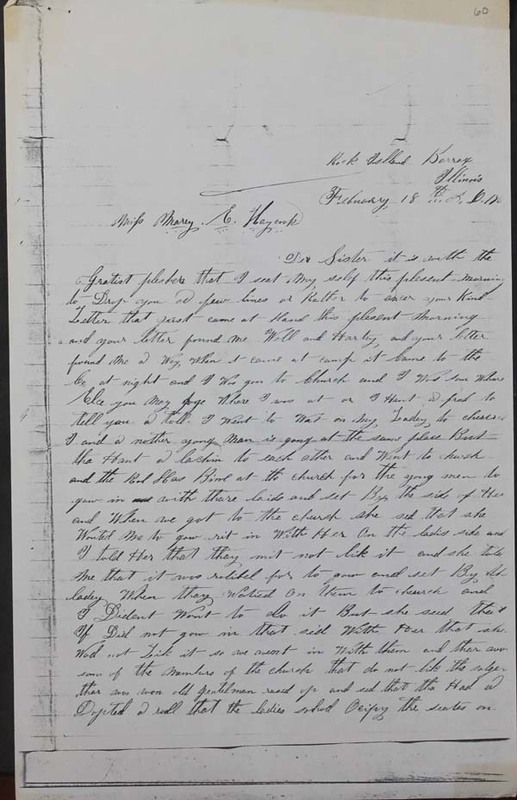 60
Rock Island Barrax
Illinois
February 18
Miss Marey. E. Haycook
Dr Sister it is with the
Gratist plesher that I seat My self this plesent morning
to Drop you a few lines or Rather to ancer your Kind
Letter that just came at Hand this plesent morning
and your letter found me Well and Harty, and your letter
found Me a Way, When it came at camp it Came to the
Co at night and I Was gon to Church and I Was som Where
Else you May Where I was at or I Hant a frad to
tell you a toll. I Went to Wat on My, Ladey, to church
I and a nother young Man is going at the same place But
tha Hant a to each other and Went to church
and the Rul Has Bine at the church for the yong men to
gow in with there ladis and set By, the side of Her
and When we got to the church she sed that she
Wonted Me to gow rit in With Her On the ladis side and
I told Her that thay mit not lik it and she tole
Me that it was for to gow and set By, the
ladey When thay Wated On them to church and
I Dident Wont to do it But she seed that
If Did not gow in that sid With Her that she
Wod not Lick it so we went in With them and ther are
som of the Members of the church that do not lik the
ther was won old gentelman rased up and sed that tha Had a
Dopted a rull that the ladies shold Ocipy the seates on